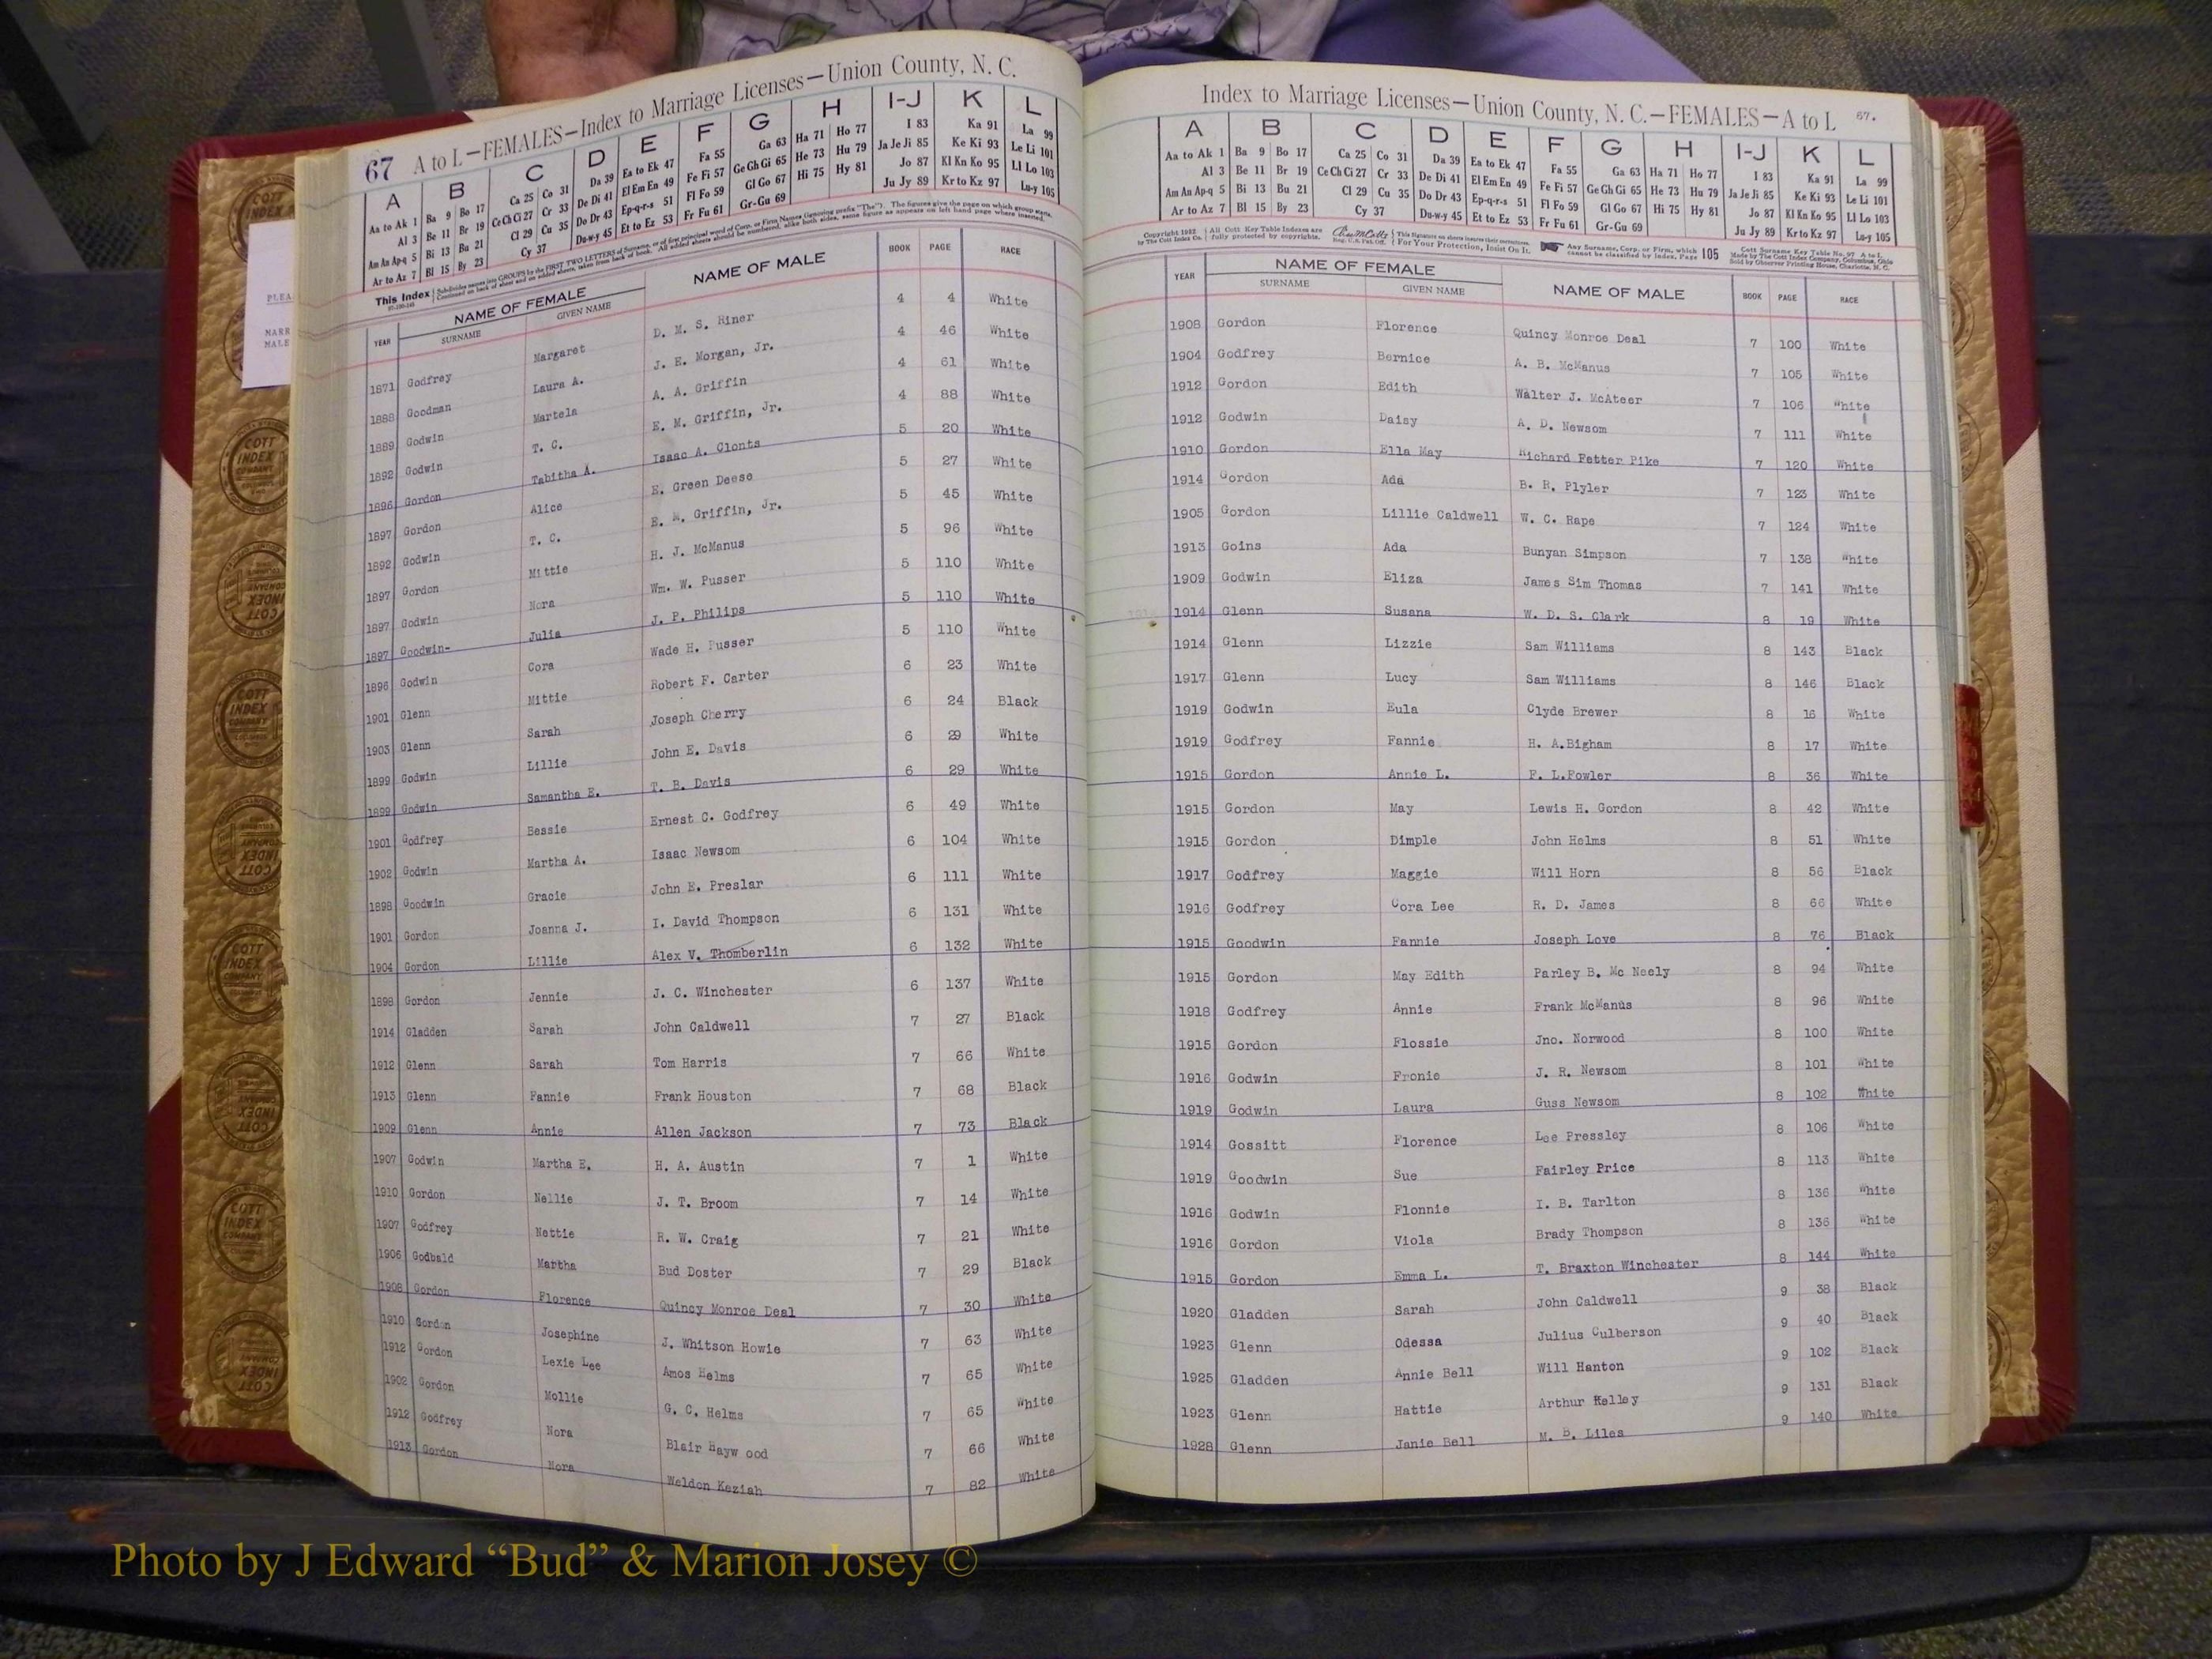 67 A to L—FEMALES—Index to Marriage Licenses—Union County, N. C.
A B C D E F G H I-J K L
Aa to Ak 1 Ba 9 Bo 17 Ca 25 Co 31 Da 39 Ea to Ek 47 Fa 55 Ga 63 Ha 71 Ho 77 I 83 Ka 91 La 99
Al 3 Be 11 Br 19 Ce Ch Ci 27 Cr 33 De Di 41 El Em En 49 Fe Fi 57 Ge Gh Gi 65 He 73 Hu 79 Ja Je Ji 85 Ke Ki 93 Le Li 101
Am An Ap-q 5 Bi 13 Bu 21 Cl 29 Cu 35 Do Dr 43 Ep-q-r-s 51 Fl Fo 59 Gl Go 67 Hi 75 Hy 81 Jo 87 Kl Kn Ko 95 Ll Lo 103
Ar to Az 7 Bl 15 By 23 Cy 37 Du-w-y 45 Et to Ez 53 Fr Fu 61 Gr-Gu 69 Ju Jy 89 Kr to Kz 97 Lu-y 105
This Index Subdivides names into GROUPS by the FIRST TWO LETTERS of Surname, or of first principal word of Corp. or Firm Names (ignoring prefix "The"). The figures give the page on which group starts.
Continued on back of sheet and on added sheets, taken from back of book. All added sheets should be numbered, alike both sides, same figure as appears on left hand page where inserted.
YEAR NAME OF FEMALE SURNAME GIVEN NAME NAME OF MALE BOOK PAGE RACE
1871 Godfrey Margaret D. M. S. Riner 4 4 White
1888 Goodman Laura A. J. E. Morgan, Jr. 4 46 White
1889 Godwin Martela A. A. Griffin 4 61 White
1892 Godwin T. C. E. M. Griffin, Jr. 4 88 White
1896 Gordon Tabitha A. Isaac A. Clonts 5 20 White
1897 Gordon Alice E. Green Deese 5 27 White
1892 Godwin T. C. E. M. Griffin, Jr. 5 45 White
1897 Gordon Mittie H. J. McManus 5 96 White
1897 Godwin Nora Wm. W. Pusser 5 110 White
1897 Goodwin- Julia J. P. Philips 5 110 White
1896 Godwin Cora Wade H. Pusser 5 110 White
1901 Glenn Mittie Robert F. Carter 6 23 White
1903 Glenn Sarah Joseph Cherry 6 24 Black
1899 Godwin Lillie John E. Davis 6 29 White
1899 Godwin Samantha E. T. B. Davis 6 29 White
1901 Godfrey Bessie Ernest C. Godfrey 6 49 White
1902 Godwin Martha A. Isaac Newsom 6 104 White
1898 Goodwin Gracie John E. Preslar 6 111 White
1901 Gordon Joanna J. I. David Thompson 6 131 White
1904 Gordon Lillie Alex V. Thomberlin 6 132 White
1898 Gordon Jennie J. C. Winchester 6 137 White
1914 Gladden Sarah John Caldwell 7 27 Black
1912 Glenn Sarah Tom Harris 7 66 White
1913 Glenn Fannie Frank Houston 7 68 Black
1909 Glenn Annie Allen Jackson 7 73 Black
1907 Godwin Martha E. H. A. Austin 7 1 White
1910 Gordon Nellie J. T. Broom 7 14 White
1907 Godfrey Nettie R. W. Craig 7 21 White
1906 Godbald Martha Bud Doster 7 29 Black
1908 Gordon Florence Quincy Monroe Deal 7 30 White
1910 Gordon Josephine J. Whitson Howie 7 63 White
1912 Gordon Lexie Lee Amos Helms 7 65 White
1902 Gordon Mollie G. C. Helms 7 65 White
1912 Godfrey Nora Blair Hayw ood 7 66 White
1913 Gordon Nora Weldon Keziah 7 82 White
Index to Marriage Licenses—Union County, N. C.—FEMALES—A to L 67.
A B C D E F G H I-J K L
Aa to Ak 1 Ba 9 Bo 17 Ca 25 Co 31 Da 39 Ea to Ek 47 Fa 55 Ga 63 Ha 71 Ho 77 I 83 Ka 91 La 99
Al 3 Be 11 Br 19 Ce Ch Ci 27 Cr 33 De Di 41 El Em En 49 Fe Fi 57 Ge Gh Gi 65 He 73 Hu 79 Ja Je Ji 85 Ke Ki 93 Le Li 101
Am An Ap-q 5 Bi 13 Bu 21 Cl 29 Cu 35 Do Dr 43 Ep-q-r-s 51 Fl Fo 59 Gl Go 67 Hi 75 Hy 81 Jo 87 Kl Kn Ko 95 Ll Lo 103
Ar to Az 7 Bl 15 By 23 Cy 37 Du-w-y 45 Et to Ez 53 Fr Fu 61 Gr-Gu 69 Ju Jy 89 Kr to Kz 97 Lu-y 105
Copyright 1932 by The Cott Index Co. All Cott Key Table Indexes are fully protected by copyrights. Reg. U.S. Pat. Off. For Your Protection, Insist On It. Any Surname, Corp. or Firm, which cannot be classified by Index, Page 105 Cott Surname Key Table No. 97 A to L Made by The Cott Index Company, Columbus, Ohio Sold by Observer Printing House, Charlotte, N. C.
YEAR NAME OF FEMALE SURNAME GIVEN NAME NAME OF MALE BOOK PAGE RACE
1908 Gordon Florence Quincy Monroe Deal 7 100 White
1904 Godfrey Bernice A. B. McManus 7 105 White
1912 Gordon Edith Walter J. McAteer 7 106 White
1912 Godwin Daisy A. D. Newsom 7 111 White
1910 Gordon Ella May Richard Fetter Pike 7 120 White
1914 Gordon Ada B. R. Plyler 7 123 White
1905 Gordon Lillie Caldwell W. C. Rape 7 124 White
1913 Goins Ada Bunyan Simpson 7 138 White
1909 Godwin Eliza James Sim Thomas 7 141 White
1914 Glenn Susana W. D. S. Clark 8 19 White
1914 Glenn Lizzie Sam Williams 8 143 Black
1917 Glenn Lucy Sam Williams 8 146 Black
1919 Godwin Eula Clyde Brewer 8 16 White
1919 Godfrey Fannie H. A.Bigham 8 17 White
1915 Gordon Annie L. F. L.Fowler 8 36 White
1915 Gordon May Lewis H. Gordon 8 42 White
1915 Gordon Dimple John Helms 8 51 White
1917 Godfrey Maggie Will Horn 8 56 Black
1916 Godfrey Cora Lee R. D. James 8 66 White
1915 Goodwin Fannie Joseph Love 8 76 Black
1915 Gordon May Edith Parley B. Mc Neely 8 94 White
1918 Godfrey Annie Frank McManus 8 96 White
1915 Gordon Flossie Jno. Norwood 8 100 White
1916 Godwin Fronie J. R. Newsom 8 101 White
1919 Godwin Laura Guss Newsom 8 102 White
1914 Gossitt Florence Lee Pressley 8 106 White
1919 Goodwin Sue Fairley Price 8 113 White
1916 Godwin Flonnie I. B. Tarlton 8 136 White
1916 Gordon Viola Brady Thompson 8 136 White
1915 Gordon Emma L. T. Braxton Winchester 8 144 White
1920 Gladden Sarah John Caldwell 9 38 Black
1923 Glenn Odessa Julius Culberson 9 40 Black
1925 Gladden Annie Bell Will Hanton 9 102 Black
1923 Glenn Hattie Arthur Kelley 9 131 Black
1928 Glenn Janie Bell M. B. Liles 9 140 White
COTT INDEX COMPANY
Photo by J Edward “Bud” & Marion Josey ©